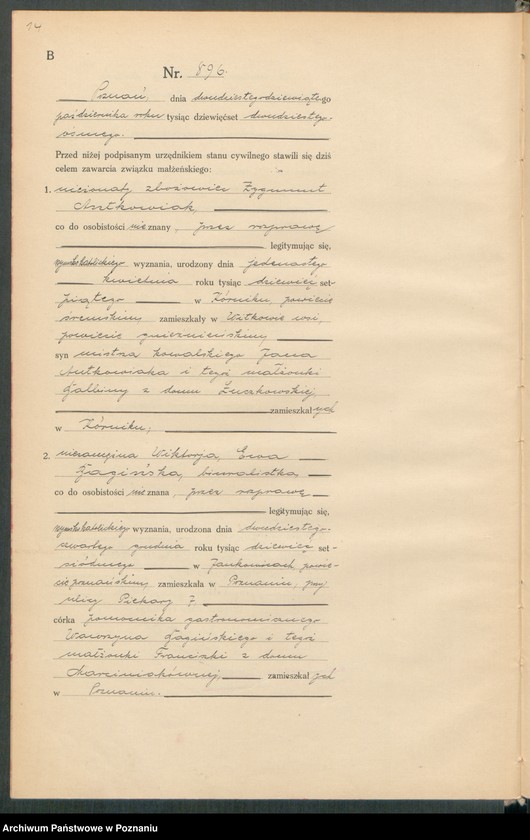 14
B
Nr. 896.
Poznań, dnia dwudziestegodziewiątego
października roku tysiąc dziewięćset dwudziestego
ósmego.
Przed niżej podpisanym urzędnikiem stanu cywilnego stawili się dziś
celem zawarcia związku małżeńskiego:
1. nieżonaty zbożowiec Zygmunt
Antkowiak,
co do osobistości nieznany, przez rozprawę
legitymując się,
rzymskokatolickiego wyznania, urodzony dnia jedenastego
kwietnia roku tysiąc dziewięćset-
piątego w Kórniku, powiecie
śremskim zamieszkały w Witkowie wsi,
powiecie gnieźnieńskim
syn mistrza kowalskiego Jana
Antkowiaka i tegoż małżonki
z domu
zamieszkałych
w Kórniku;
2. niezamężna Wiktorja, Ewa
biuralistka
co do osobistości nieznana, przez rozprawę
legitymując się,
rzymskokatolickiego wyznania, urodzona dnia dwudziestego-
czwartego grudnia roku tysiąc dziewięćset-
siódmego w Jankowicach powie-
cie poznańskim zamieszkała w Poznaniu, przy
ulicy Piekary 7.
córka pomocnika gastronomicznego
Wawrzyna i tegoż
małżonki Franciszki z domu
Marciniakównej zamieszkałych
w Poznaniu.
Archiwum Państwowe w Poznaniu